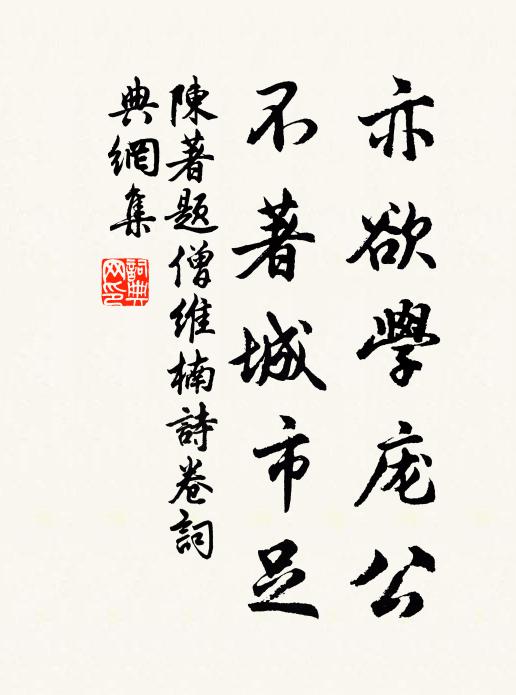 亦欲學庞公
不著城市足
陳著題僧維楠詩卷詞
典網集
詞典网印